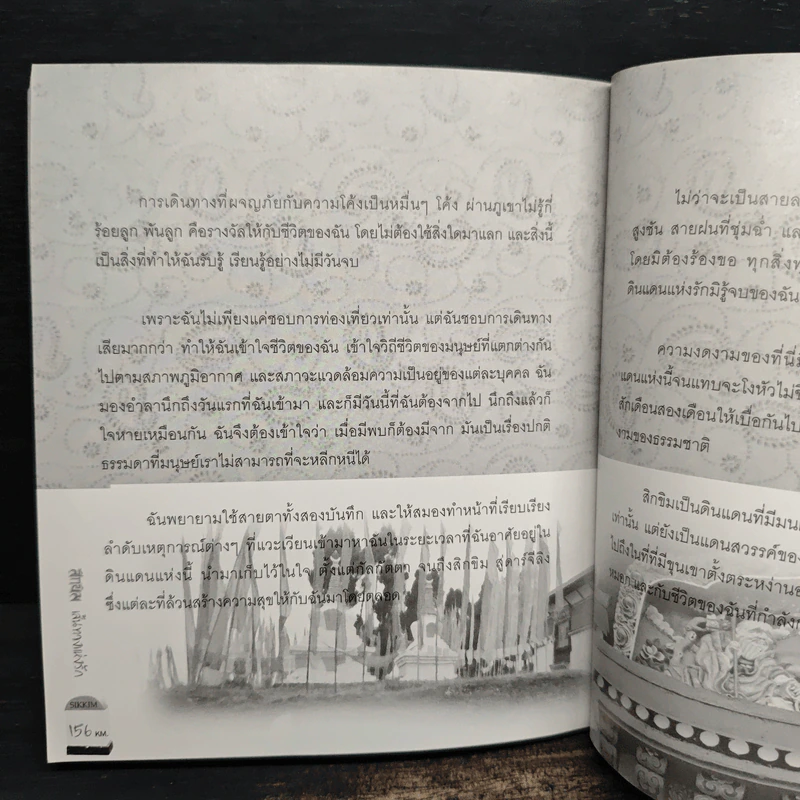 การเดินทางที่ผจญภัยกับความโค้งเป็นหมื่นๆ โค้ง ผ่านภูเขาไม่รู้กี่
ร้อยลูก พันลูก คือรางวัลให้กับชีวิตของฉัน โดยไม่ต้องใช้สิ่งใดมาแลก และสิ่งนี้
เป็นสิ่งที่ทำให้ฉันรับรู้ เรียนรู้อย่างไม่มีวันจบ
เพราะฉันไม่เพียงแค่ชอบการท่องเที่ยวเท่านั้น แต่ฉันชอบการเดินทาง
เสียมากกว่า ทำให้ฉันเข้าใจชีวิตของฉัน เข้าใจวิถีชีวิตของมนุษย์ที่แตกต่างกัน
ไปตามสภาพภูมิอากาศ และสภาวะแวดล้อมความเป็นอยู่ของแต่ละบุคคล ฉัน
มองอำลานึกถึงวันแรกที่ฉันเข้ามา และก็มีวันนี้ที่ฉันต้องจากไป นึกถึงแล้วก็
ใจหายเหมือนกัน ฉันจึงต้องเข้าใจว่า เมื่อมีพบก็ต้องมีจาก มันเป็นเรื่องปกติ
ธรรมดาที่มนุษย์เราไม่สามารถที่จะหลีกหนีได้
ฉันพยายามใช้สายตาทั้งสองบันทึก และให้สมองทำหน้าที่เรียบเรียง
ลำดับเหตุการณ์ต่างๆ ที่แวะเวียนเข้ามาหาฉันในระยะเวลาที่ฉันอาศัยอยู่ใน
ดินแดนแห่งนี้ นำมาเก็บไว้ในใจ ตั้งแต่กัลกัตตา จนถึงสิกขิม สู่ดาร์จีลิง
ซึ่งแต่ละที่ล้วนสร้างความสุขให้กับฉันมาโดยตลอด
สิกขิม เส้นทางแห่งรัก
SIKKIM
156 กม.
ไม่ว่าจะเป็นสาย
สูงชัน สายฝนที่ชุ่มฉ่ำ
โดยมิต้องร้องขอ ทุกสิ่ง
ดินแดนแห่งรักมิรู้จบของฉัน
ความงดงามของที่นี่
แดนแห่งนี้จนแทบจะโงหัวไม่
สักเดือนสองเดือนให้เบื่อกันไป
งามของธรรมชาติ
สิกขิมเป็นดินแดนที่มี
เท่านั้น แต่ยังเป็นแดนสวรรค์ของ
ไปถึงในที่ที่มีขุนเขาตั้งตระหง่าน
หมอก และกับชีวิตของฉันที่กำลัง